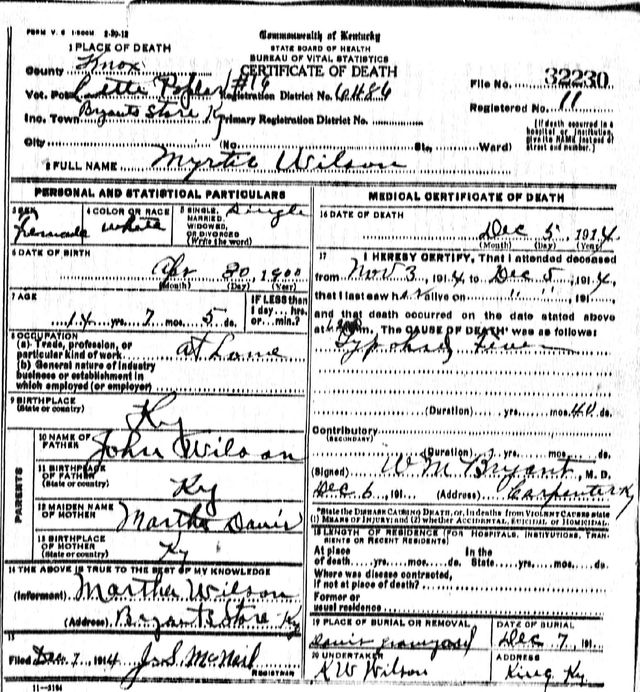 FORM V. S 1-500M 2-20-12
Commonwealth of Kentucky
STATE BOARD OF HEALTH
BUREAU OF VITAL STATISTICS
CERTIFICATE OF DEATH
1 PLACE OF DEATH
County Knox
Vot. Pct. Little Poplar #16 Registration District No. 6486
File No. 32230
Inc. Town Bryants Store Ky Primary Registration District No.
Registered No. 11
City (No. St., Ward)
[If death occurred in a hospital or institution, give its NAME instead of street and number.]
2 FULL NAME Myrtle Wilson
PERSONAL AND STATISTICAL PARTICULARS
3 SEX Female
4 COLOR OR RACE White
5 SINGLE, MARRIED, WIDOWED, OR DIVORCED (Write the word) Single
6 DATE OF BIRTH
Apr 30, 1900
(Month) (Day) (Year)
7 AGE
14 yrs. 7 mos. 5 ds.
IF LESS than 1 day... hrs. or... min.?
8 OCCUPATION
(a) Trade, profession, or particular kind of work at
(b) General nature of industry business or establishment in which employed (or employer)
9 BIRTHPLACE
(State or country) Ky
PARENTS
10 NAME OF FATHER John Wilson
11 BIRTHPLACE OF FATHER
(State or country) Ky
12 MAIDEN NAME OF MOTHER Martha Davis
13 BIRTHPLACE OF MOTHER
(State or country) Ky
14 THE ABOVE IS TRUE TO THE BEST OF MY KNOWLEDGE
(Informant) Martha Wilson
(Address) Bryants Store Ky
15
Filed Dec 7, 1914 J. S. McNail
REGISTRAR
11-3184
MEDICAL CERTIFICATE OF DEATH
16 DATE OF DEATH
Dec 5, 1914
(Month) (Day) (Year)
17 I HEREBY CERTIFY, That I attended deceased
from Nov 3, 1914, to Dec 5, 1914,
that I last saw h alive on " ", 191
and that death occurred on the date stated above
at m. The CAUSE OF DEATH* was as follows:
Typohad Fever
(Duration) yrs. mos. 40 ds.
Contributory
(SECONDARY)
(Duration) yrs. mos. ds.
(Signed) W M Bryant, M. D.
Dec 6, 191 (Address) Carpenter Ky
*State the DISEASE CAUSING DEATH, or, in deaths from VIOLENT CAUSES state (1) MEANS OF INJURY; and (2) whether ACCIDENTAL, SUICIDAL or HOMICIDAL.
18 LENGTH OF RESIDENCE (FOR HOSPITALS, INSTITUTIONS, TRANSIENTS OR RECENT RESIDENTS)
At place of death yrs. mos. ds. In the State yrs. mos. ds.
Where was disease contracted,
if not at place of death?
Former or
usual residence
19 PLACE OF BURIAL OR REMOVAL
Davis graveyard
DATE OF BURIAL
Dec 7, 191
20 UNDERTAKER
K W Wilson
ADDRESS
King Ky